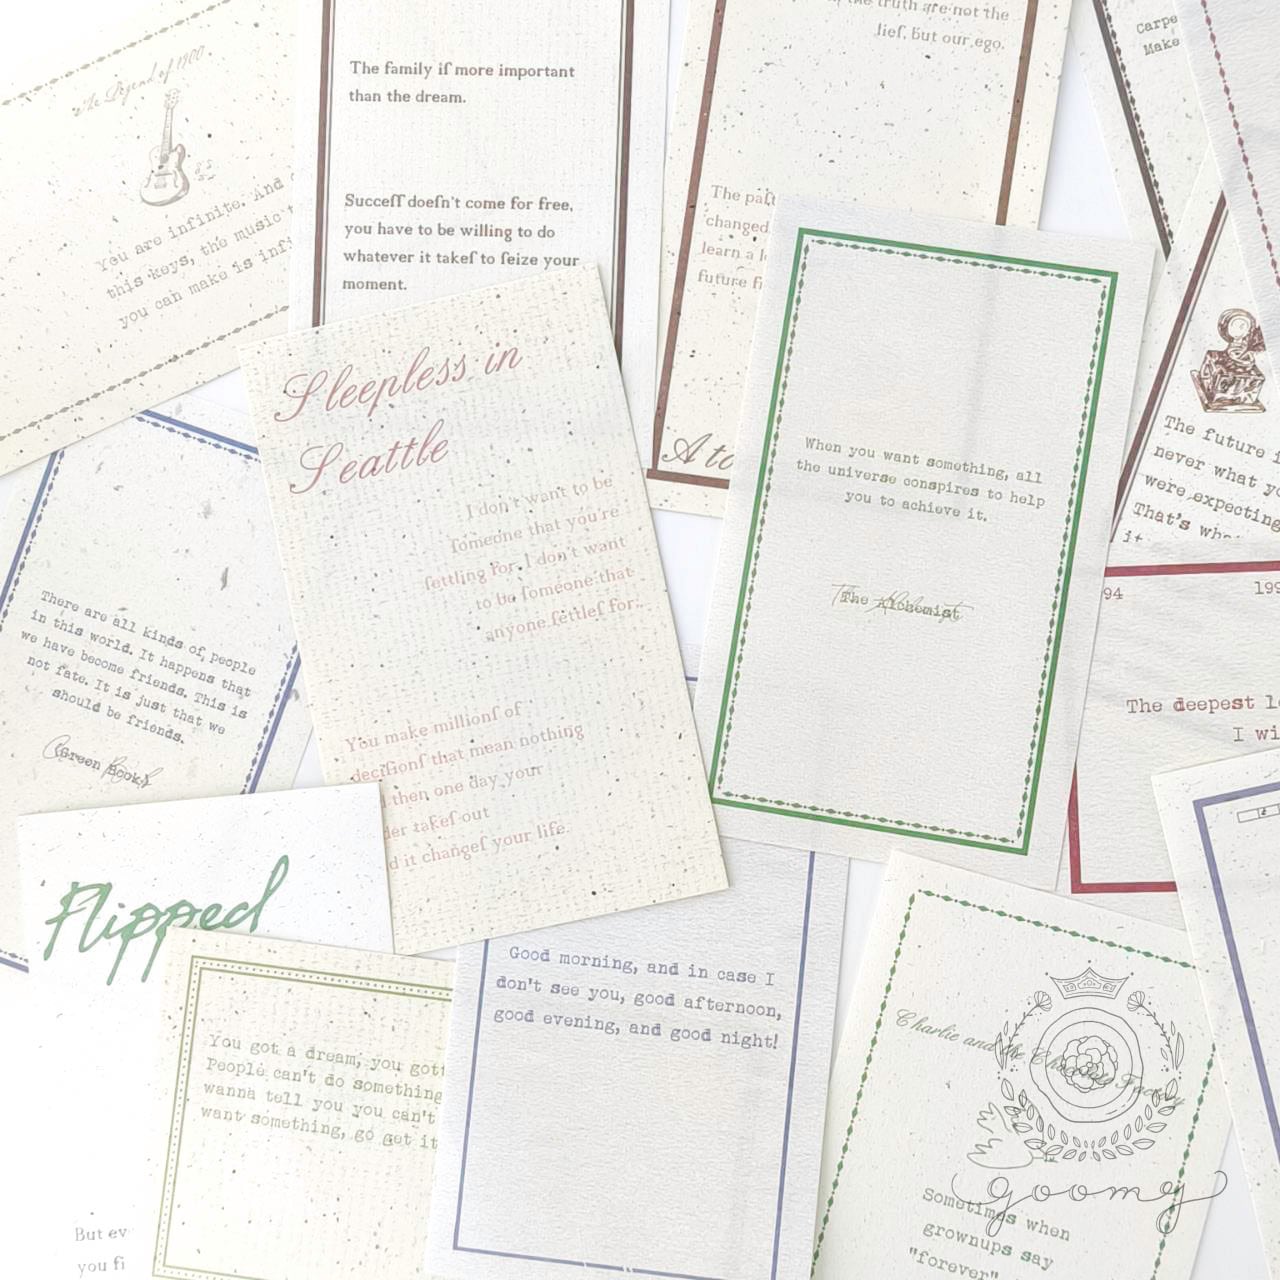 The Legend of 1900
You are infinite. And
this keys, the music
you can make is infi
The family if more important
than the dream.
Succeff doefn't come for free,
you have to be willing to do
whatever it takef to feize your
moment.
the truth are not the
lief, but our ego.
The paft
changed
learn a l
future f
A to
Carpe
Make
The future i
never what yo
were expecting
That's wha
it
Sleepless in
Seattle
I don't want to be
fomeone that you're
fettling for. I don't want
to be fomeone that
anyone fettlef for.
You make millionf of
decifionf that mean nothing
then one day your
der takef out
d it changef your life.
When you want something, all
the universe conspires to help
you to achieve it.
The Alchemist
There are all kinds of people
in this world. It happens that
we have become friends. This is
not fate. It is just that we
should be friends.
Green Book
94
199
The deepest l
I wi
Flipped
But ev
you fi
You got a dream, you gott
People can't do something
wanna tell you you can't
want something, go get it
Good morning, and in case I
don't see you, good afternoon,
good evening, and good night!
Charlie and the Chocolate Factory
Sometimes when
grownups say
"forever"
goomy